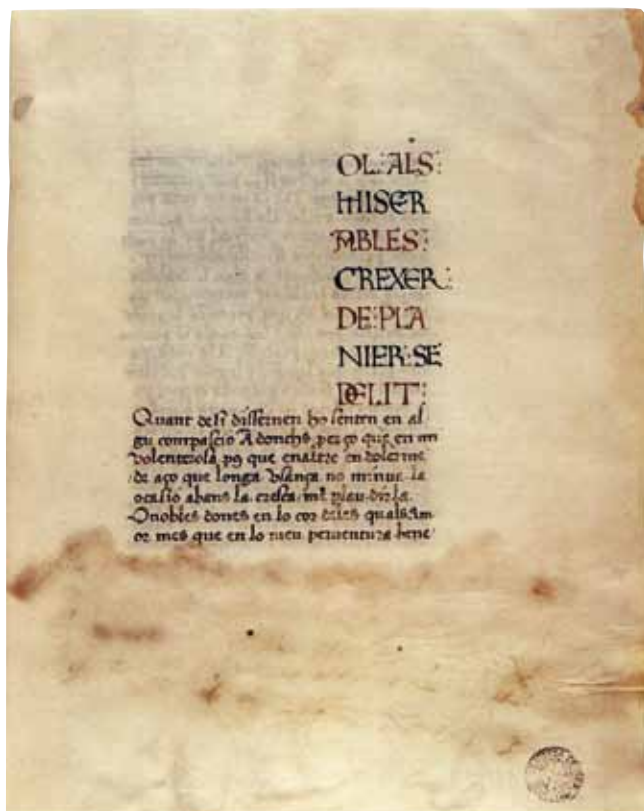 OL:ALS:
MISER
ABLES:
CREXER:
DE:PLA
NIER:SE
DELIT:
Quant de si dissernen ho senten en al
gu compascio Adonchs perço que en mi
volenterosa pus que en altre en dolerme
de aço que longa usança no minue la
ocasio abans la cresca mes plau dir la
O nobles dones en lo cor de les quals am
or mes que en lo meu perventura bene